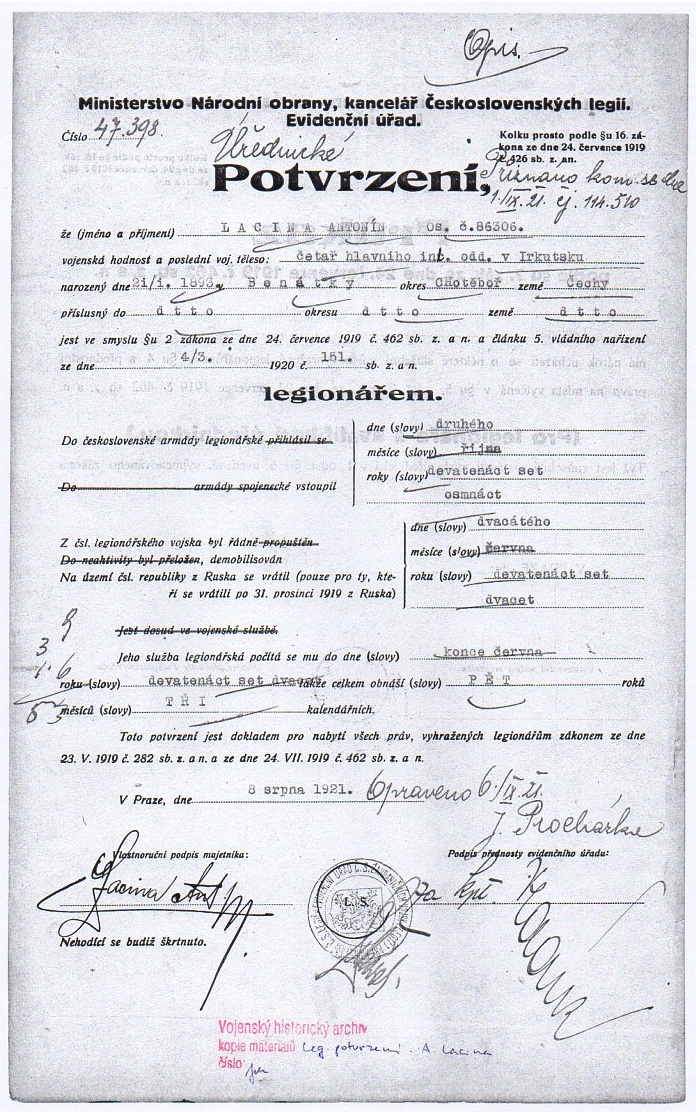 Opis.
Ministerstvo Národní obrany, kancelář Československých legií.
Evidenční úřad.
Číslo 47.398.
Kolku prosto podle §u 16. zá-
kona ze dne 24. července 1919
č. 426 sb. z. an.
Úřednické
Potvrzení,
Přiznáno kom. se dne
1./IX.21. čj. 114.510
že (jméno a příjmení) LACINA ANTONÍN Os. č.86306.
vojenská hodnost a poslední voj. těleso: četař hlavního int. odd. v Irkutsku
narozený dne 21/1. 1893, Benátky okres Chotěboř země Čechy
příslušný do dtto okresu dtto země dtto
jest ve smyslu §u 2 zákona ze dne 24. července 1919 č. 462 sb. z. a n. a článku 5. vládního nařízení
ze dne 4/3. 1920 č. 151. sb. z. a n.
legionářem.
Do československé armády legionářské přihlásil se
Do armády spojenecké vstoupil
dne (slovy) druhého
měsíce (slovy) října
roky (slovy) devatenáct set
osmnáct
Z čsl. legionářského vojska byl řádně propuštěn
Do neaktivity byl přeložen, demobilisován
Na území čsl. republiky z Ruska se vrátil (pouze pro ty, kte-
ří se vrátili po 31. prosinci 1919 z Ruska)
dne (slovy) dvacátého
měsíce (slovy) června
roku (slovy) devatenáct set
dvacet
Jest dosud ve vojenské službě.
Jeho služba legionářská počítá se mu do dne (slovy) konce června
roku (slovy) devatenáct set dvacet takže celkem obnáší (slovy) PĚT roků
měsíců (slovy) TŘI kalendářních.
Toto potvrzení jest dokladem pro nabytí všech práv, vyhražených legionářům zákonem ze dne
23. V. 1919 č. 282 sb. z. a n. a ze dne 24. VII. 1919 č. 462 sb. z. a n.
V Praze, dne 8 srpna 1921. Opraveno 6./IX.21.
J. Procházka
Vlastnoruční podpis majetníka:
Podpis přednosty evidenčního úřadu:
Lacina Ant
L. S.
Za kpt.
Nehodící se budiž škrtnuto.
Vojenský historický archiv
kopie materiálů Leg. potvrzení - A. Lacina
číslo